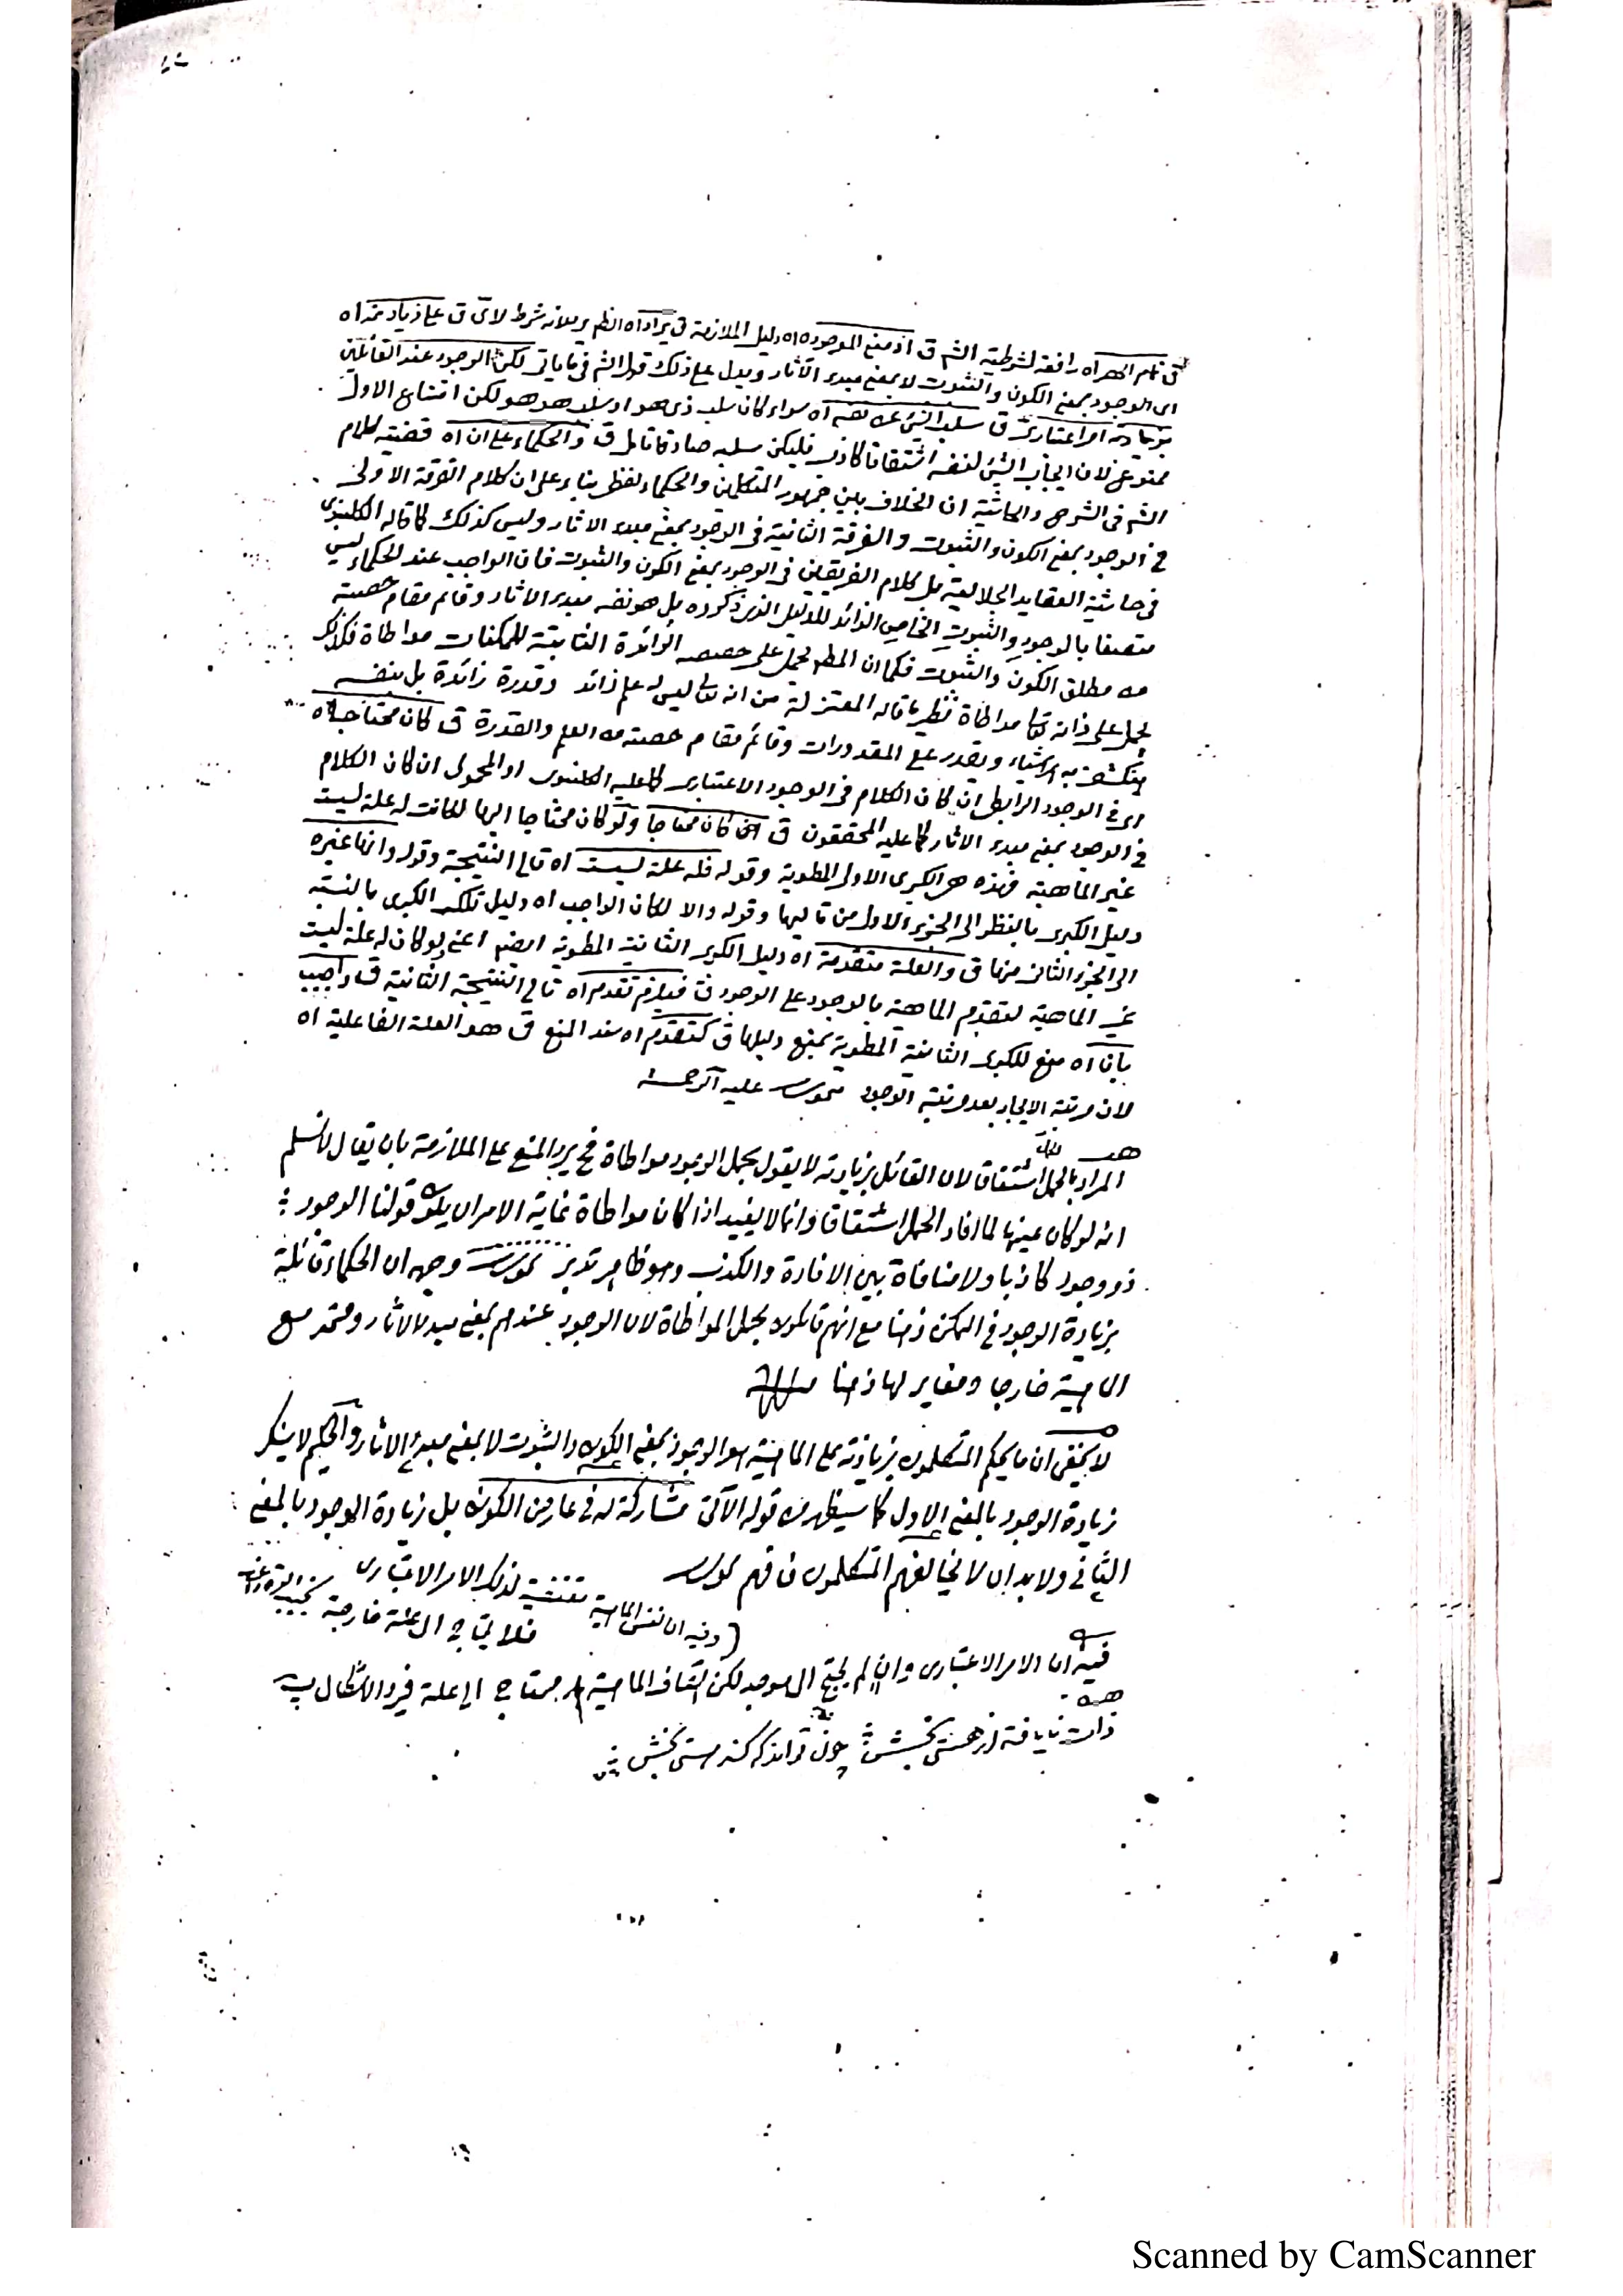 ق نعم المص اه رافعة لشرطية الش ق اذ معنى الموجود اه دليل الملازمة ق يراد اه الظ يريد لانه شرط لا ق على زيادته اه
اى الوجود بمعنى الكون والثبوت لا بمعنى مبدء الآثار ويدل على ذلك قول الش فى ما يأتى لكن الوجود عند القائلين
بزيادته امر اعتبارى ق سلب الشئ عن نفسه اه سواء كان سلب ذى هو او سلب هو هو لكن امتناع الاول
ممنوع لان ايجاب الشئ لنفسه اشتقاقا كاذب فليكن سلبه صادقا تأمل ق والحكماء على ان اه قضية كلام
الش فى الشرح والحاشية ان الخلاف بين جمهور المتكلمين والحكماء لفظى بناء على ان كلام الفرقة الاولى
فى الوجود بمعنى الكون والثبوت والفرقة الثانية فى الوجود بمعنى مبدء الاثار وليس كذلك كما قاله الكلنبوى
فى حاشية العقايد الجلالية بل كلام الفريقين فى الوجود بمعنى الكون والثبوت فان الواجب عند الحكماء ليس
متصفا بالوجود والثبوت الخاص الزائد للدليل الذى ذكروه بل هو نفسه مبدء الاثار وقائم مقام حصته
من مطلق الكون والثبوت فكما ان المط يحمل على حصصه الزائدة الثابتة للممكنات مواطاة فكذلك
يحمل على ذاته تعا مواطاة نظير ما قاله المعتزلة من انه تعالى ليس له علم زائد وقدرة زائدة بل بنفسه
ينكشف به الاشياء ويقدر على المقدورات وقائم مقام حصته من العلم والقدرة ق كان محتاجا اه
اى فى الوجود الرابطى ان كان الكلام فى الوجود الاعتبارى كما عليه الكلنبوى او المحمولى ان كان الكلام
فى الوجود بمعنى مبدء الاثار كما عليه المحققون ق كان محتاجا ولو كان محتاجا اليها لكانت له علة ليست
غير الماهية فهذه هى الكبرى الاولى المطوية وقوله فله علة ليست اه تالى النتيجة وقوله وانها غيره
دليل الكبرى بالنظر الى الجزء الاول من تاليها وقوله والا لكان الواجب اه دليل تلك الكبرى بالنسبة
الى الجزء الثانى منها ق والعلة متقدمة اه دليل الكبرى الثانية المطوية ايضا اعنى لو كان له علة ليست
غير الماهية لتقدم الماهية بالوجود على الوجود ق فيلزم تقدم اه تالى النتيجة الثانية ق واجيب
بانا اه منع للكبرى الثانية المطوية بمنع دليلها ق كتقدم اه سند المنع ق هو العلة الفاعلية اه
لان مرتبة الايجاد بعد مرتبة الوجود عليه الرحمة
المراد بالحمل اشتقاقا لان القائل بزيادته لا يقول بحمل الوجود مواطاة فح يرد المنع على الملازمة بان يقال لا نسلم
انه لو كان عينها لما افاد الحمل اشتقاقا وانما لا يفيد اذا كان مواطاة غاية الامر ان يكون قولنا الوجود
ذو وجود كاذبا ولا منافاة بين الافادة والكذب وهو ظاهر تدبر وجه ان الحكماء قائلة
بزيادة الوجود فى الممكن ذهنا مع انهم قائلون بحمل المواطاة لان الوجود عندهم بمعنى مبدء الاثار ومتحد مع
الماهية خارجا ومغاير لها ذهنا
لا يخفى ان ما يحكم المتكلمون بزيادته على الماهية هو الوجود بمعنى الكون والثبوت لا بمعنى مبدء الاثار والحكيم لا ينكر
زيادة الوجود بالمعنى الاول كما سيظهر من قوله الآتى مشاركة له فى عارض الكون بل زيادة الوجود بالمعنى
الثانى ولا بد ان لا يخالفهم المتكلمون فافهم
وفيه ان نفس الماهية مقتضية لذلك الامر الاعتبارى
فلا يحتاج الى علة خارجة
فيه ان الامر الاعتبارى وان لم يحتج الى موجد لكن اتصاف الماهية به محتاج الى علة فيرد الاشكال
ذات نايافته از هستى بخش چون تواند كه كند هستى بخش
Scanned by CamScanner